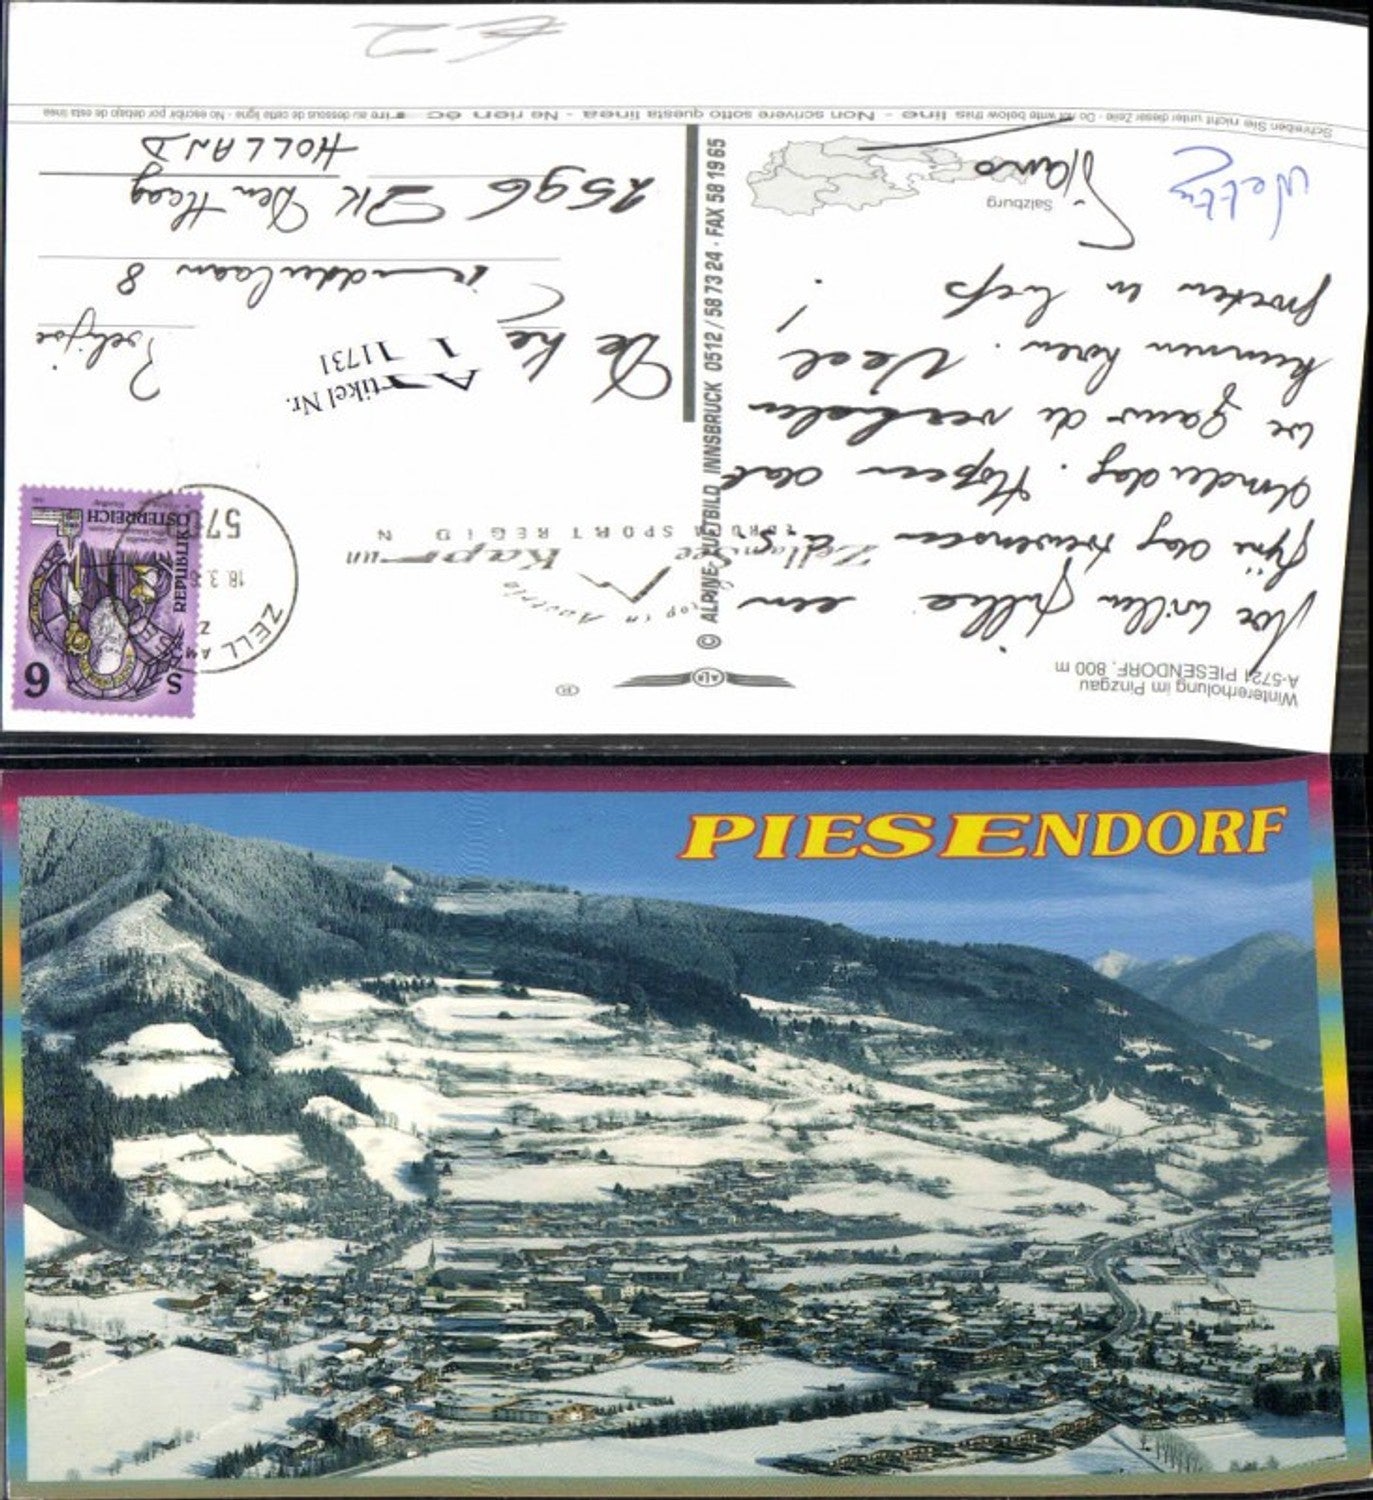 Winterer­holung im Pinzgau
A-5721 PIESENDORF, 800 m
We willen jullie een
fijne dag wensen a.s.
donderdag. Hopen dat
we gauw de verhalen
kunnen horen. Veel
groeten en liefs
!
Wetty
Salzburg
© ALPINE-LUFTBILD INNSBRUCK 0512 / 58 73 24 · FAX 58 19 65
Top in Austria
Zell am See Kaprun
EUROPA SPORT REGION
ZELL AM
18. 3.
570
S 6
REPUBLIK
ÖSTERREICH
Artikel Nr.
11731
De
8
2596 Den Haag
HOLLAND
Schreiben Sie nicht unter dieser Zeile - Do not write below this line - Non scrivere sotto questa linea - Ne rien écrire au dessous de cette ligne - No escribir por debajo de esta línea
PIESENDORF